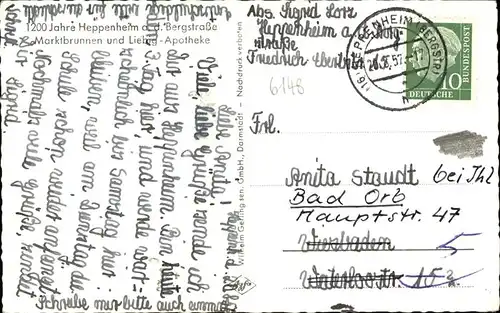 1200 Jahre Heppenheim a. d. Bergstraße
Marktbrunnen und Liebig-Apotheke
Heppenh
Liebe Anita!
Viele, liebe Grüße sende ich
Dir aus Heppenheim. Bin heute
3. Tag hier, und werde wahr=
scheinlich bis Samstag hier
bleiben, weil am Dienstag die
Schule schon wieder anfängt.
Nochmals viele Grüße sendet
Dir Sigrid
Schreibe mir bitte auch einmal
Wilhelm Gerling sen. GmbH., Darmstadt - Nachdruck verboten
Abs. Sigrid Lotz
Heppenheim a.
straße
Friedrich Ebertstr.
6148
(16) HEPPENHEIM (BERGSTR)
DEUTSCHE BUNDESPOST
10
Frl.
Anita Staudt bei Ihl
Bad Orb
Hauptstr. 47
Wiesbaden
Waterloostr.